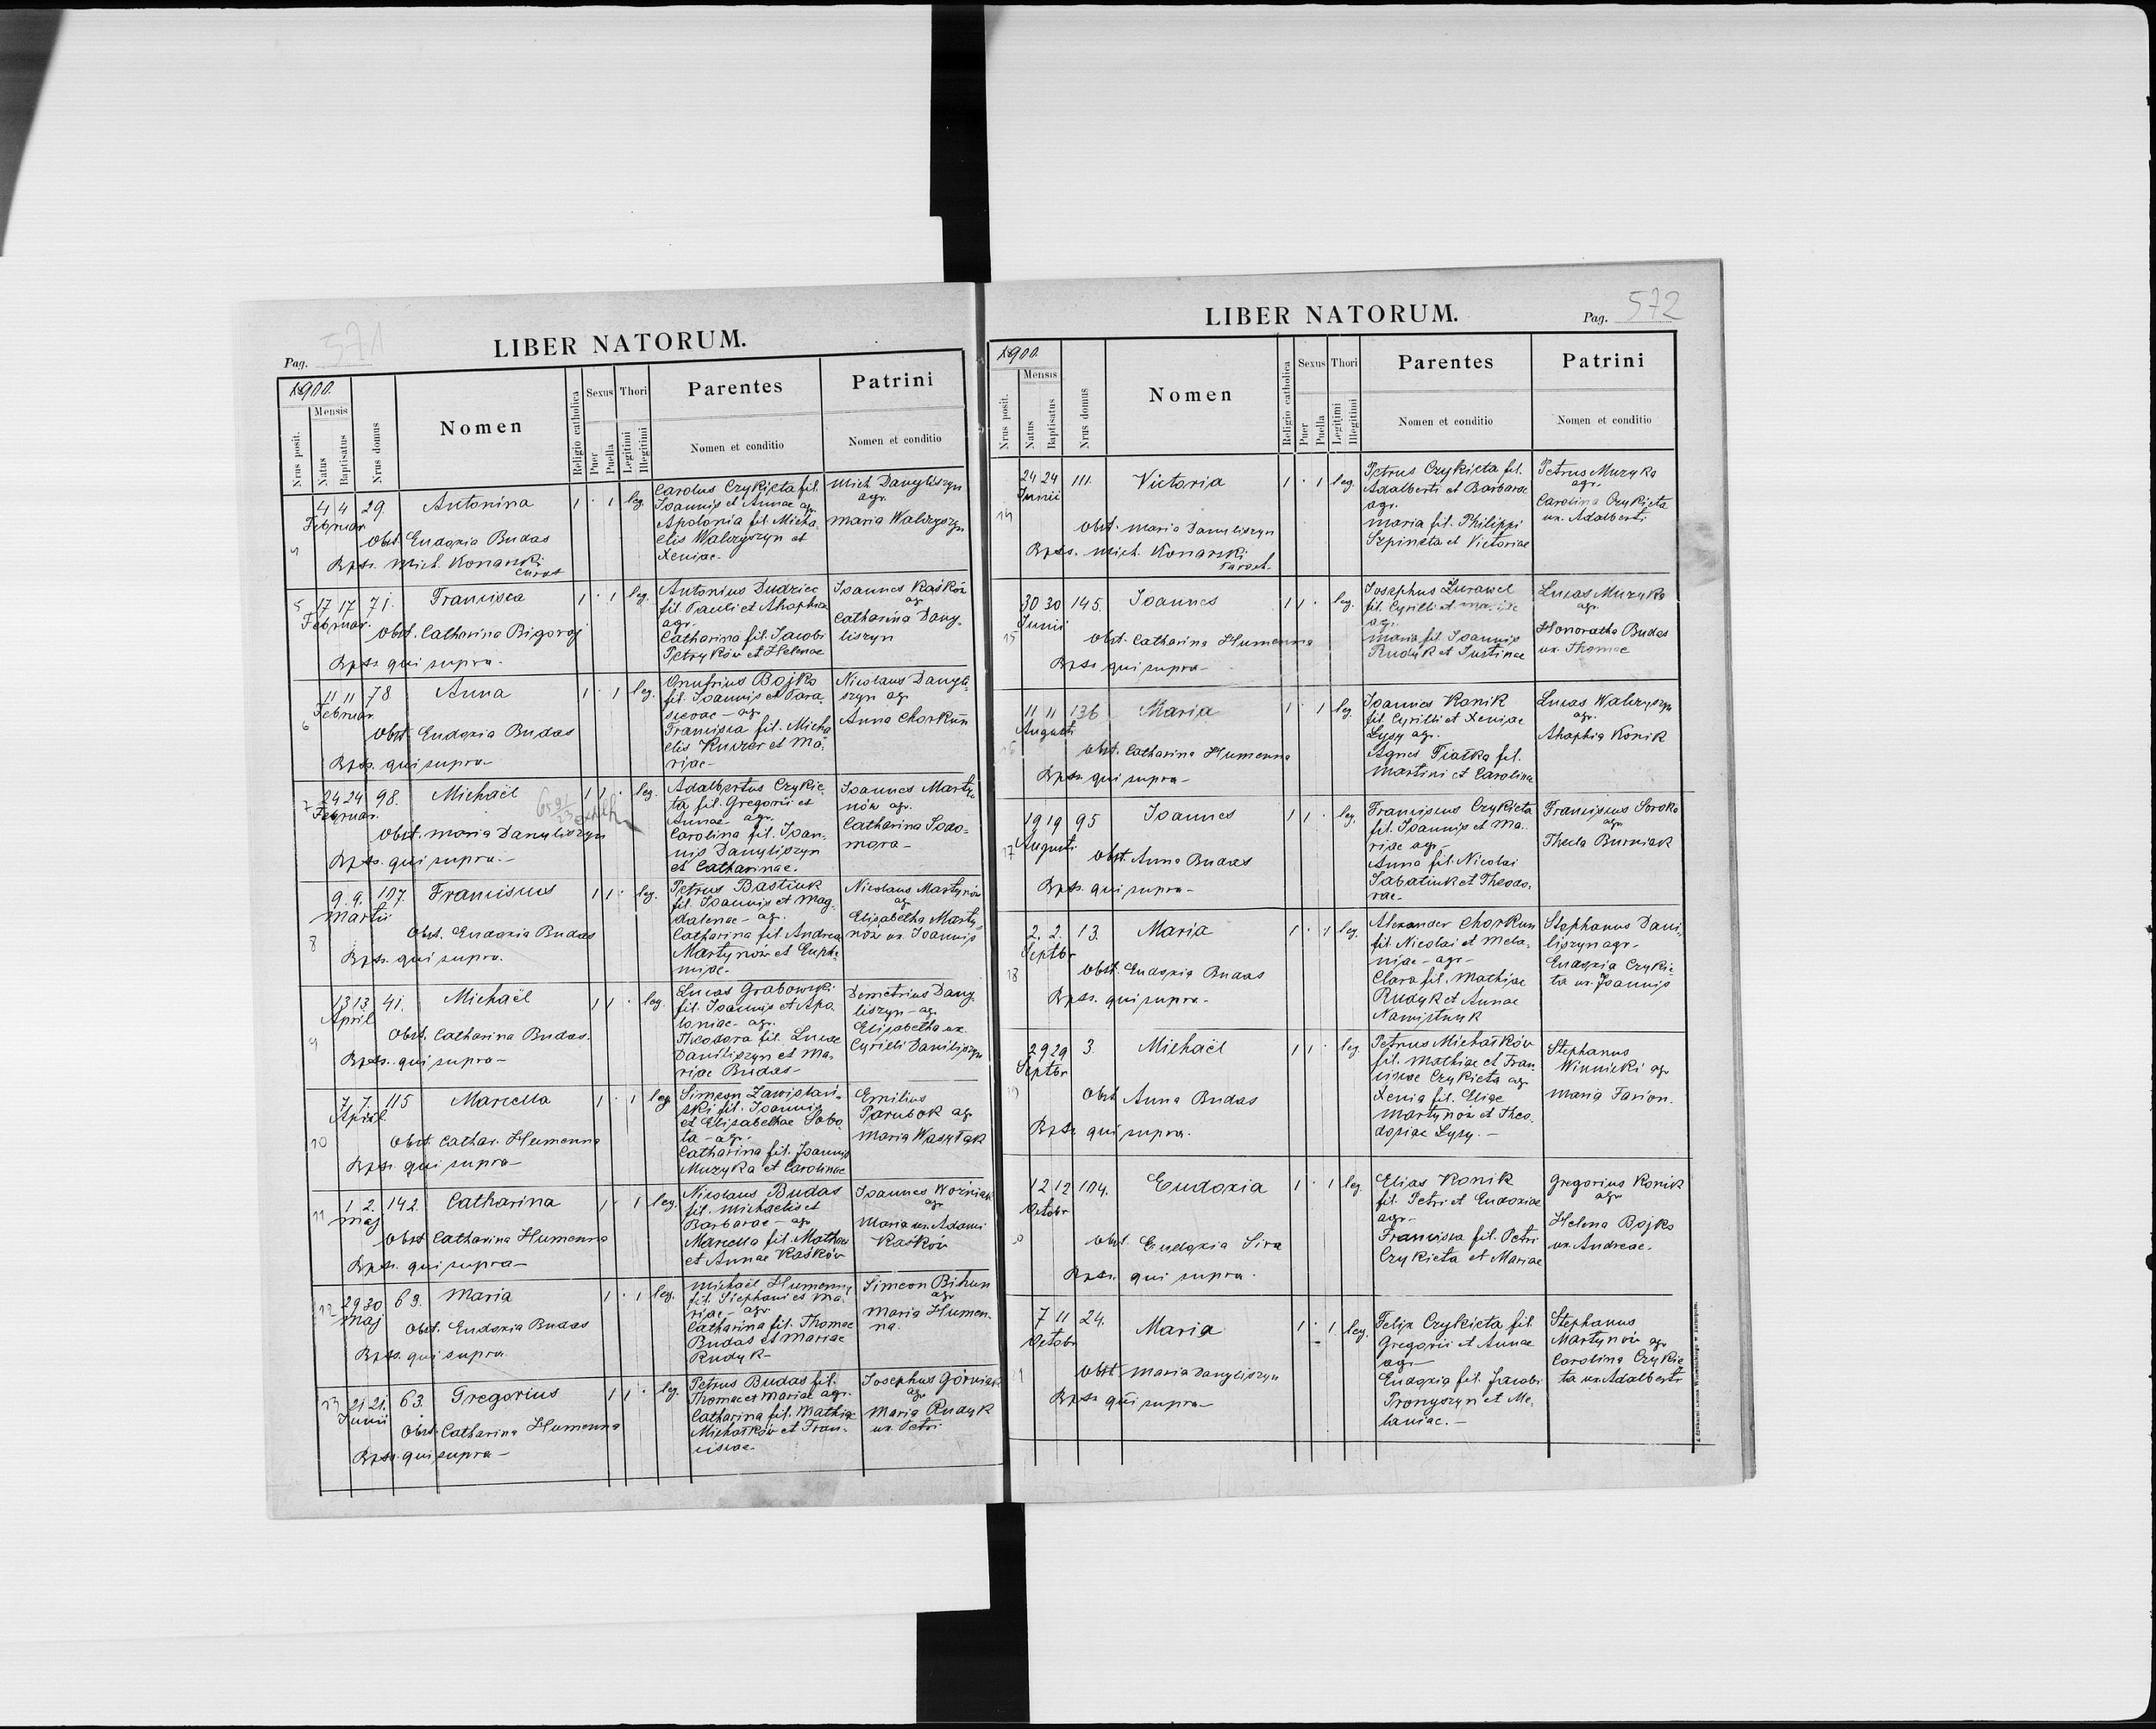 Pag. 571
LIBER NATORUM.
1900.
Nrus posit.
Mensis
Natus
Baptisatus
Nrus domus
Nomen
Religio catholica
Sexus
Puer
Puella
Thori
Legitimi
Illegitimi
Parentes
Nomen et conditio
Patrini
Nomen et conditio
4 4 29. Antonina 1 · 1 leg.
Februar.
Obst. Eudoxia Budas
Bpts. Mich. Konarski
Carolus Czykieta fil.
Joannis et Annae agr.
Apolonia fil. Micha-
elis Walczyszyn et
Xeniae.
Mich. Danyliszyn
agr.
Maria Walczyszyn
5 17 17 71. Francisca 1 · 1 leg.
Februar.
Obst. Catharina Bigoraj
Bpts. qui supra-
Antonius Dudziec
fil. Pauli et Ahaphia
agr.
Catharina fil. Jacobi
Petryków et Helenae
Joannes Kaśków
agr
Catharina Dany-
liszyn
6 11 11 78 Anna 1 · 1 leg.
Februar.
Obst. Eudoxia Budas
Bpts. qui supra-
Onufrius Bojko
fil. Joannis et Para-
scevae - agr
Francisca fil. Micha
elis Kuszer et Ma-
riae-
Nicolaus Danyli-
szyn agr
Anna Chorkun
7 24 24 98. Michaël 1 1 · leg.
Februar.
Obst. Maria Danyliszyn
Bpts. qui supra.-
Adalbertus Czykie-
ta fil. Gregorii et
Annae - agr.
Carolina fil. Joan-
nis Danyliszyn
et Catharinae.
Joannes Marty-
nów agr.
Catharina Sodo-
mora-
8 9. 9. 107. Franciscus 1 1 · leg.
Martii
Obst. Eudoxia Budas
Bpts. qui supra.
Petrus Bastiuk
fil. Joannis et Mag-
dalenae - agr.
Catharina fil. Andrea
Martynów et Euph-
miae-
Nicolaus Martynów
agr
Elisabetha Marty-
nów ux. Joannis
9 13 13 41. Michaël 1 1 · leg.
April
Obst. Catharina Budas.
Bpts. qui supra-
Lucas Grabowski
fil. Joannis et Apo-
loniae - agr.
Theodora fil. Lucae
Daniliszyn et Ma-
riae Budas-
Demetrius Dany-
liszyn - agr
Elisabetha ux.
Cyrilli Daniliszyn
10 7. 7. 115 Marcella 1 · 1 leg
April
Obst. Cathar. Humenna
Bpts. qui supra-
Simeon Zawiślań-
ski fil. Joannis
et Elisabethae Sobo-
ta - agr.
Catharina fil. Joannis
Muzyka et Carolinae
Emilius
Parubok agr
Maria Wasyłak
11 1 2. 142. Catharina 1 · 1 leg.
Maj
Obst Catharina Humenna
Bpts. qui supra-
Nicolaus Budas
fil. Michaelis et
Barbarae - agr
Marcella fil. Mathaei
et Annae Kaśków
Joannes Woźniak
agr
Maria ux. Adami
Kaśków
12 29 30 63. Maria 1 · 1 leg.
Maj
Obst. Eudoxia Budas
Bpts. qui supra.
Michaël Humenny
fil. Stephani et Ma-
riae - agr
Catharina fil. Thomae
Budas et Mariae
Rudyk-
Simeon Bihun
agr
Maria Humen-
na.
13 21 21. 63. Gregorius 1 1 · leg
Junii
Obst. Catharina Humenna
Bpts. qui supra-
Petrus Budas fil.
Thomae et Mariae agr.
Catharina fil. Mathiae
Michałków et Fran-
ciscae-
Josephus Górniak
agr
Maria Rudyk
ux. Petri
LIBER NATORUM.
Pag. 572
1900.
Nrus posit.
Mensis
Natus
Baptisatus
Nrus domus
Nomen
Religio catholica
Sexus
Puer
Puella
Thori
Legitimi
Illegitimi
Parentes
Nomen et conditio
Patrini
Nomen et conditio
14 24 24 111. Victoria 1 · 1 leg.
Junii
Obst. Maria Danyliszyn
Bpts. Mich. Konarski
Paroch.
Petrus Czykieta fil.
Adalberti et Barbarae
agr.
Maria fil. Philippi
Szpineta et Victoriae
Petrus Muzyka
agr.
Carolina Czykieta
ux. Adalberti
15 30 30 145. Joannes 1 1 · leg.
Junii
Obst. Catharina Humenna
Bpts. qui supra-
Josephus Żurawel
fil. Cyrilli et Mariae
agr.
Maria fil. Joannis
Rudyk et Justinae
Lucas Muzyka
agr.
Honoratha Budas
ux. Thomae
16 11 11 136 Maria 1 · 1 leg
Augusti
Obst. Catharina Humenna
Bpts. qui supra-
Joannes Konik
fil. Cyrilli et Xeniae
Łysy agr.
Agnes Fiałka fil.
Martini et Carolinae
Lucas Walczyszyn
agr.
Ahaphia Konik
17 19 19 95 Joannes 1 1 · leg.
Augusti
Obst. Anna Budas
Bpts. qui supra-
Franciscus Czykieta
fil. Joannis et Ma-
riae agr-
Anna fil. Nicolai
Sabatiuk et Theodo-
rae-
Franciscus Soroka
agr
Thecla Burniak
18 2. 2. 13. Maria 1 · 1 leg.
Septbr
Obst. Eudoxia Budas
Bpts. qui supra-
Alexander Chorkun
fil. Nicolai et Mela-
niae - agr-
Clara fil. Mathiae
Rudyk et Annae
Stephanus Dani-
liszyn agr-
Eudoxia Czykie-
ta ux. Joannis
19 29 29 3. Michaël 1 1 · leg
Septbr
Obst Anna Budas
Bpts. qui supra.
Petrus Michałków
fil. Mathiae et Fran-
ciscae Czykieta agr
Xenia fil. Eliae
Martynów et Theo-
dosiae Łysy.-
Stephanus
Winnicki agr
Maria Farion.
12 12 104. Eudoxia 1 · 1 leg
Octobr
Obst. Eudoxia Sira
Bpts. qui supra.
Elias Konik
fil. Petri et Eudoxiae
agr-
Francisca fil. Petri
Czykieta et Mariae
Gregorius Konik
agr
Helena Bojko
ux. Andreae.
7 11 24. Maria 1 · 1 leg.
Octobr
Obst Maria Danyliszyn
Bpts qui supra-
Felix Czykieta fil.
Gregorii et Annae
agr-
Eudoxia fil. Jacobi
Pronyszyn et Me-
laniae.-
Stephanus
Martynów agr
Carolina Czykie-
ta ux. Adalberti